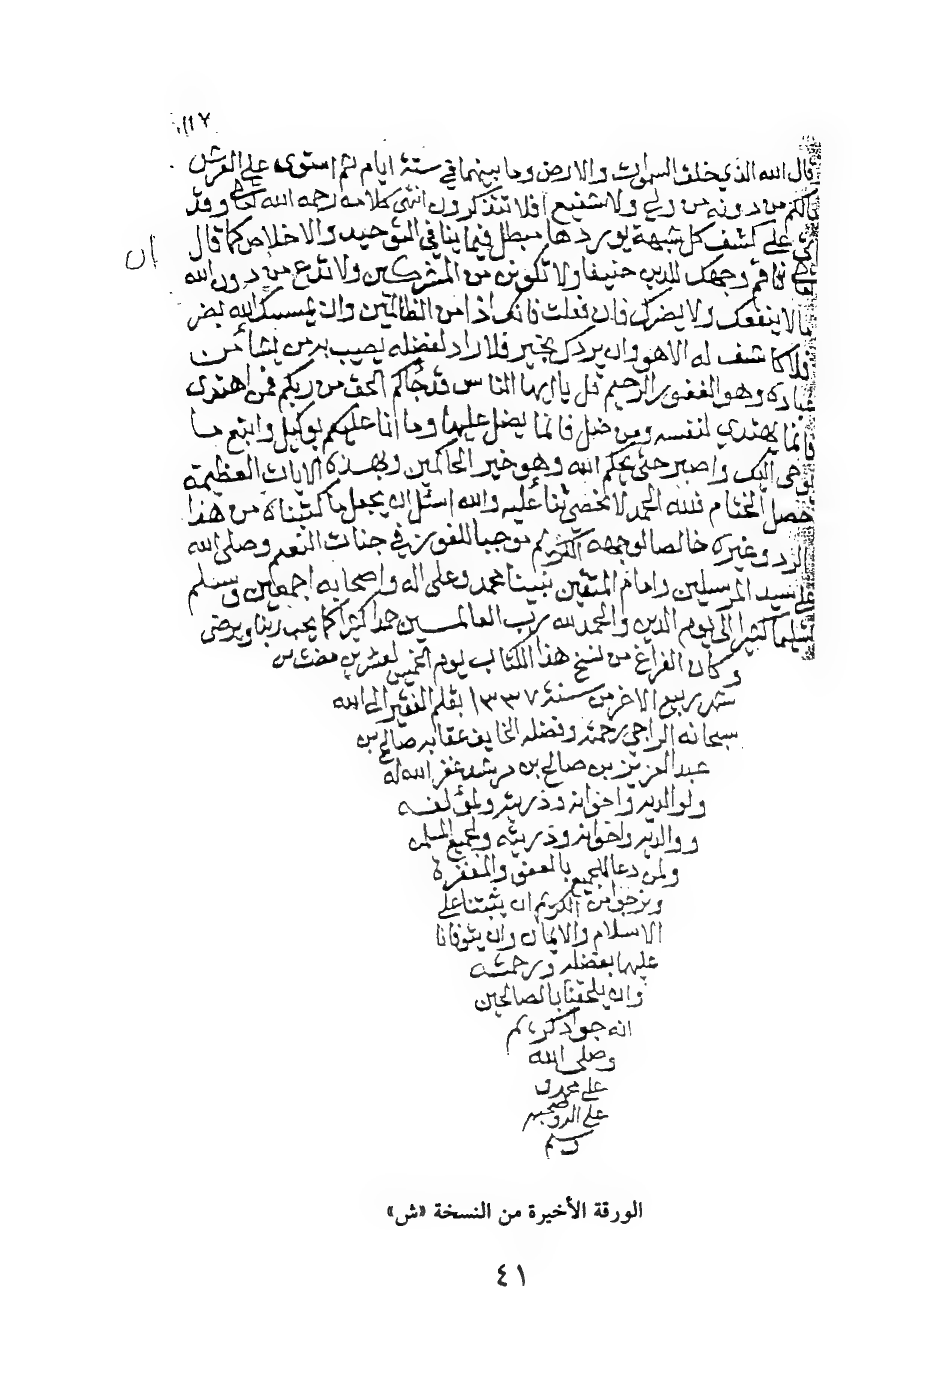 ١١٧
قال الله الذي خلق السموات والارض وما بينهما في ستة ايام ثم استوى على العرش
مالكم من دونه من ولي ولا شفيع افلا تتذكرون انتهى كلامه رحمه الله تعالى وقد
على كشف كل شبهة يوردها مبطل فيما ينافي التوحيد والاخلاص كما قال
ان
فاقم وجهك للدين حنيفا ولا تكونن من المشركين ولا تدع من دون الله
مالا ينفعك ولا يضرك فان فعلت فانك اذا من الظالمين وان يمسسك الله بضر
فلا كاشف له الا هو وان يردك بخير فلا راد لفضله يصيب به من يشاء من
عباده وهو الغفور الرحيم قل يا ايها الناس قد جاكم الحق من ربكم فمن اهتدى
فانما يهتدي لنفسه ومن ضل فانما يضل عليها وما انا عليكم بوكيل واتبع ما
يوحى اليك واصبر حتى يحكم الله وهو خير الحاكمين وبهذه الايات العظيمة
حصل الختام فلله الحمد لا نحصي ثناء عليه والله اسئل ان يجعل ما كتبناه من هذا
الرد وغيره خالصا لوجهه الكريم موجبا للفوز في جنات النعيم وصلى الله
على سيد المرسلين وامام المتقين نبينا محمد وعلى اله واصحابه اجمعين وسلم
تسليما كثيرا الى يوم الدين والحمد لله رب العالمين حمدا كثيرا كما يحب ربنا ويرضى
وكان الفراغ من نسخ هذا الكتاب يوم الخميس لعشرين مضت من
شهر ربيع الاخر من سنة ١٣٣٧ بقلم الفقير الى الله
سبحانه الراجي رحمته وفضله الخايف عقابه صالح بن
عبد العزيز بن صالح بن مرشد غفر الله له
ولوالديه واخوانه وذريته ولمؤلفه
ووالديه واخوانه وذريته ولجميع المسلمين
ولمن دعا للجميع بالعفو والمغفرة
ونرجوا من الكريم ان يثبتنا على
الاسلام والايمان وان يتوفانا
عليها بفضله ورحمته
وان يلحقنا بالصالحين
انه جواد كريم
وصلى الله
على محمد و
على اله وصحبه
وسلم
الورقة الأخيرة من النسخة «ش»
٤١